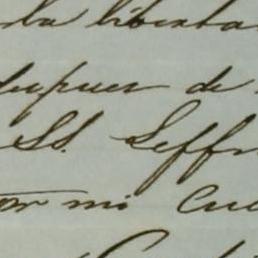 la liberta
despues de
SS. Seffr
por mi cu